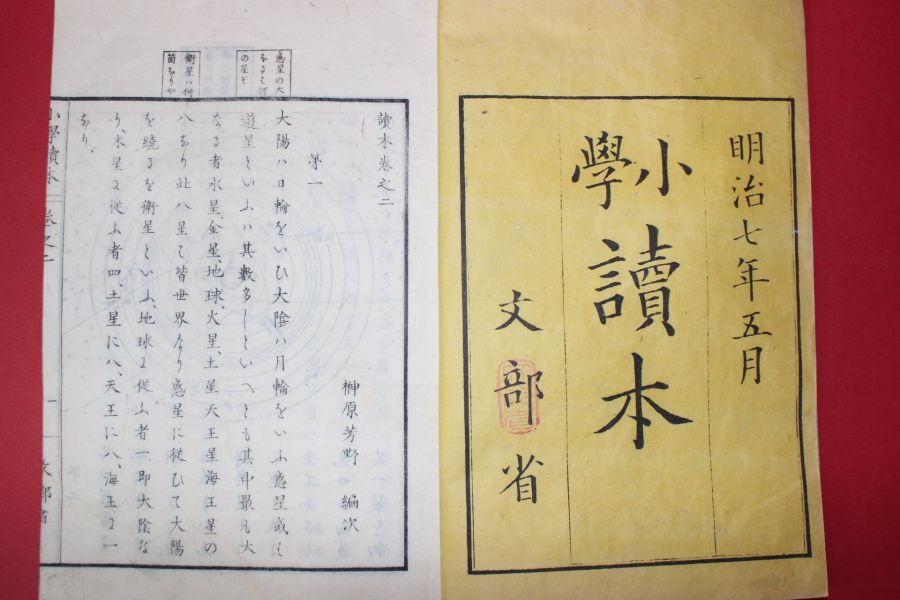 明治七年五月
小學
讀本
文部省
惑星の大
なるは何
の星ぞ
衛星ハ何
箇ありや
讀本卷之二
第一
榊原芳野 編次
大陽ハ日輪をいひ大陰ハ月輪をいふ惑星或は
遊星といふハ其數多しといへども其中最凡大
なる者水星、金星、地球、火星、土星天王星海王星の
八なり此八星ミ皆世界なり惑星に従ひて大陽
を繞るを衛星といふ、地球に従ふ者一、即大陰な
り、木星に従ふ者四、土星に八、天王に八、海王に一
なり、
小學讀本 卷之二 一 文部省